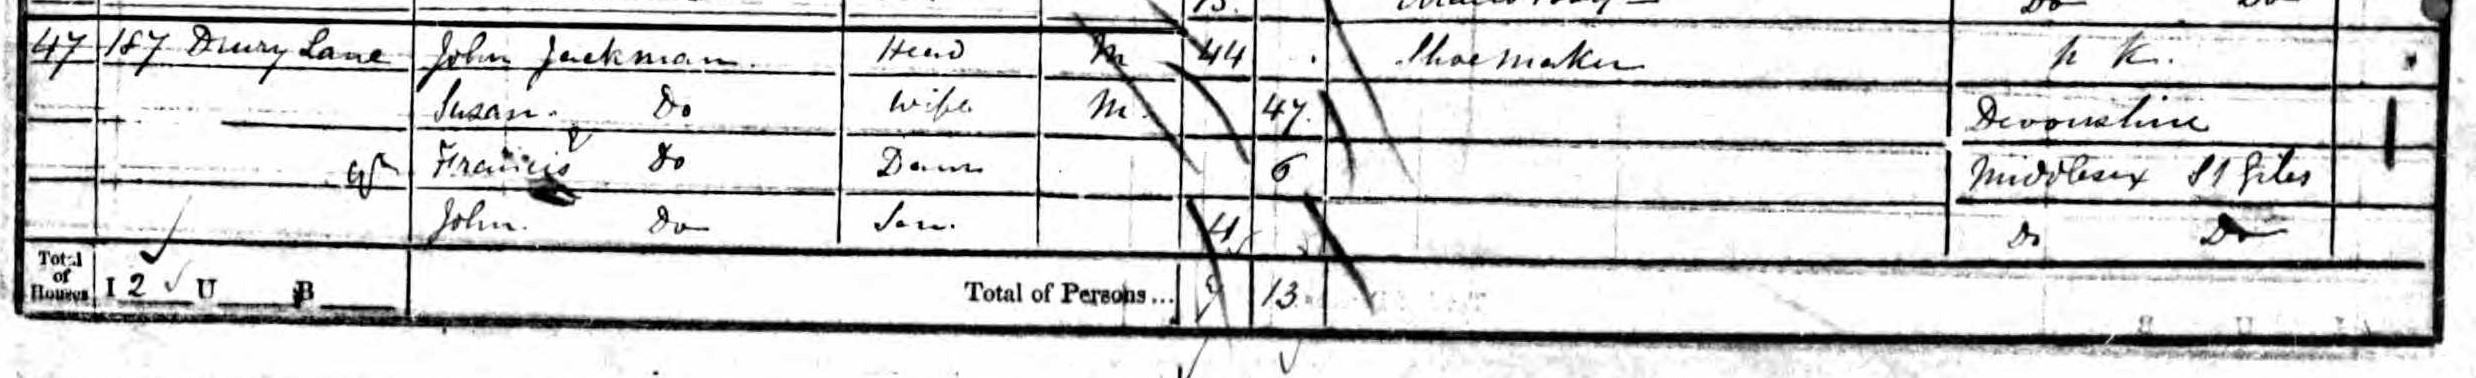 13.
Do Do
47 187 Drury Lane John Jackman Head M 44 Shoemaker N K.
Susan Do Wife M. 47. Devonshire
Francis Do Daur 6 Middlesex St Giles
John Do Son. 4 Do Do
Total of Houses I 2 U B Total of Persons... 9 13